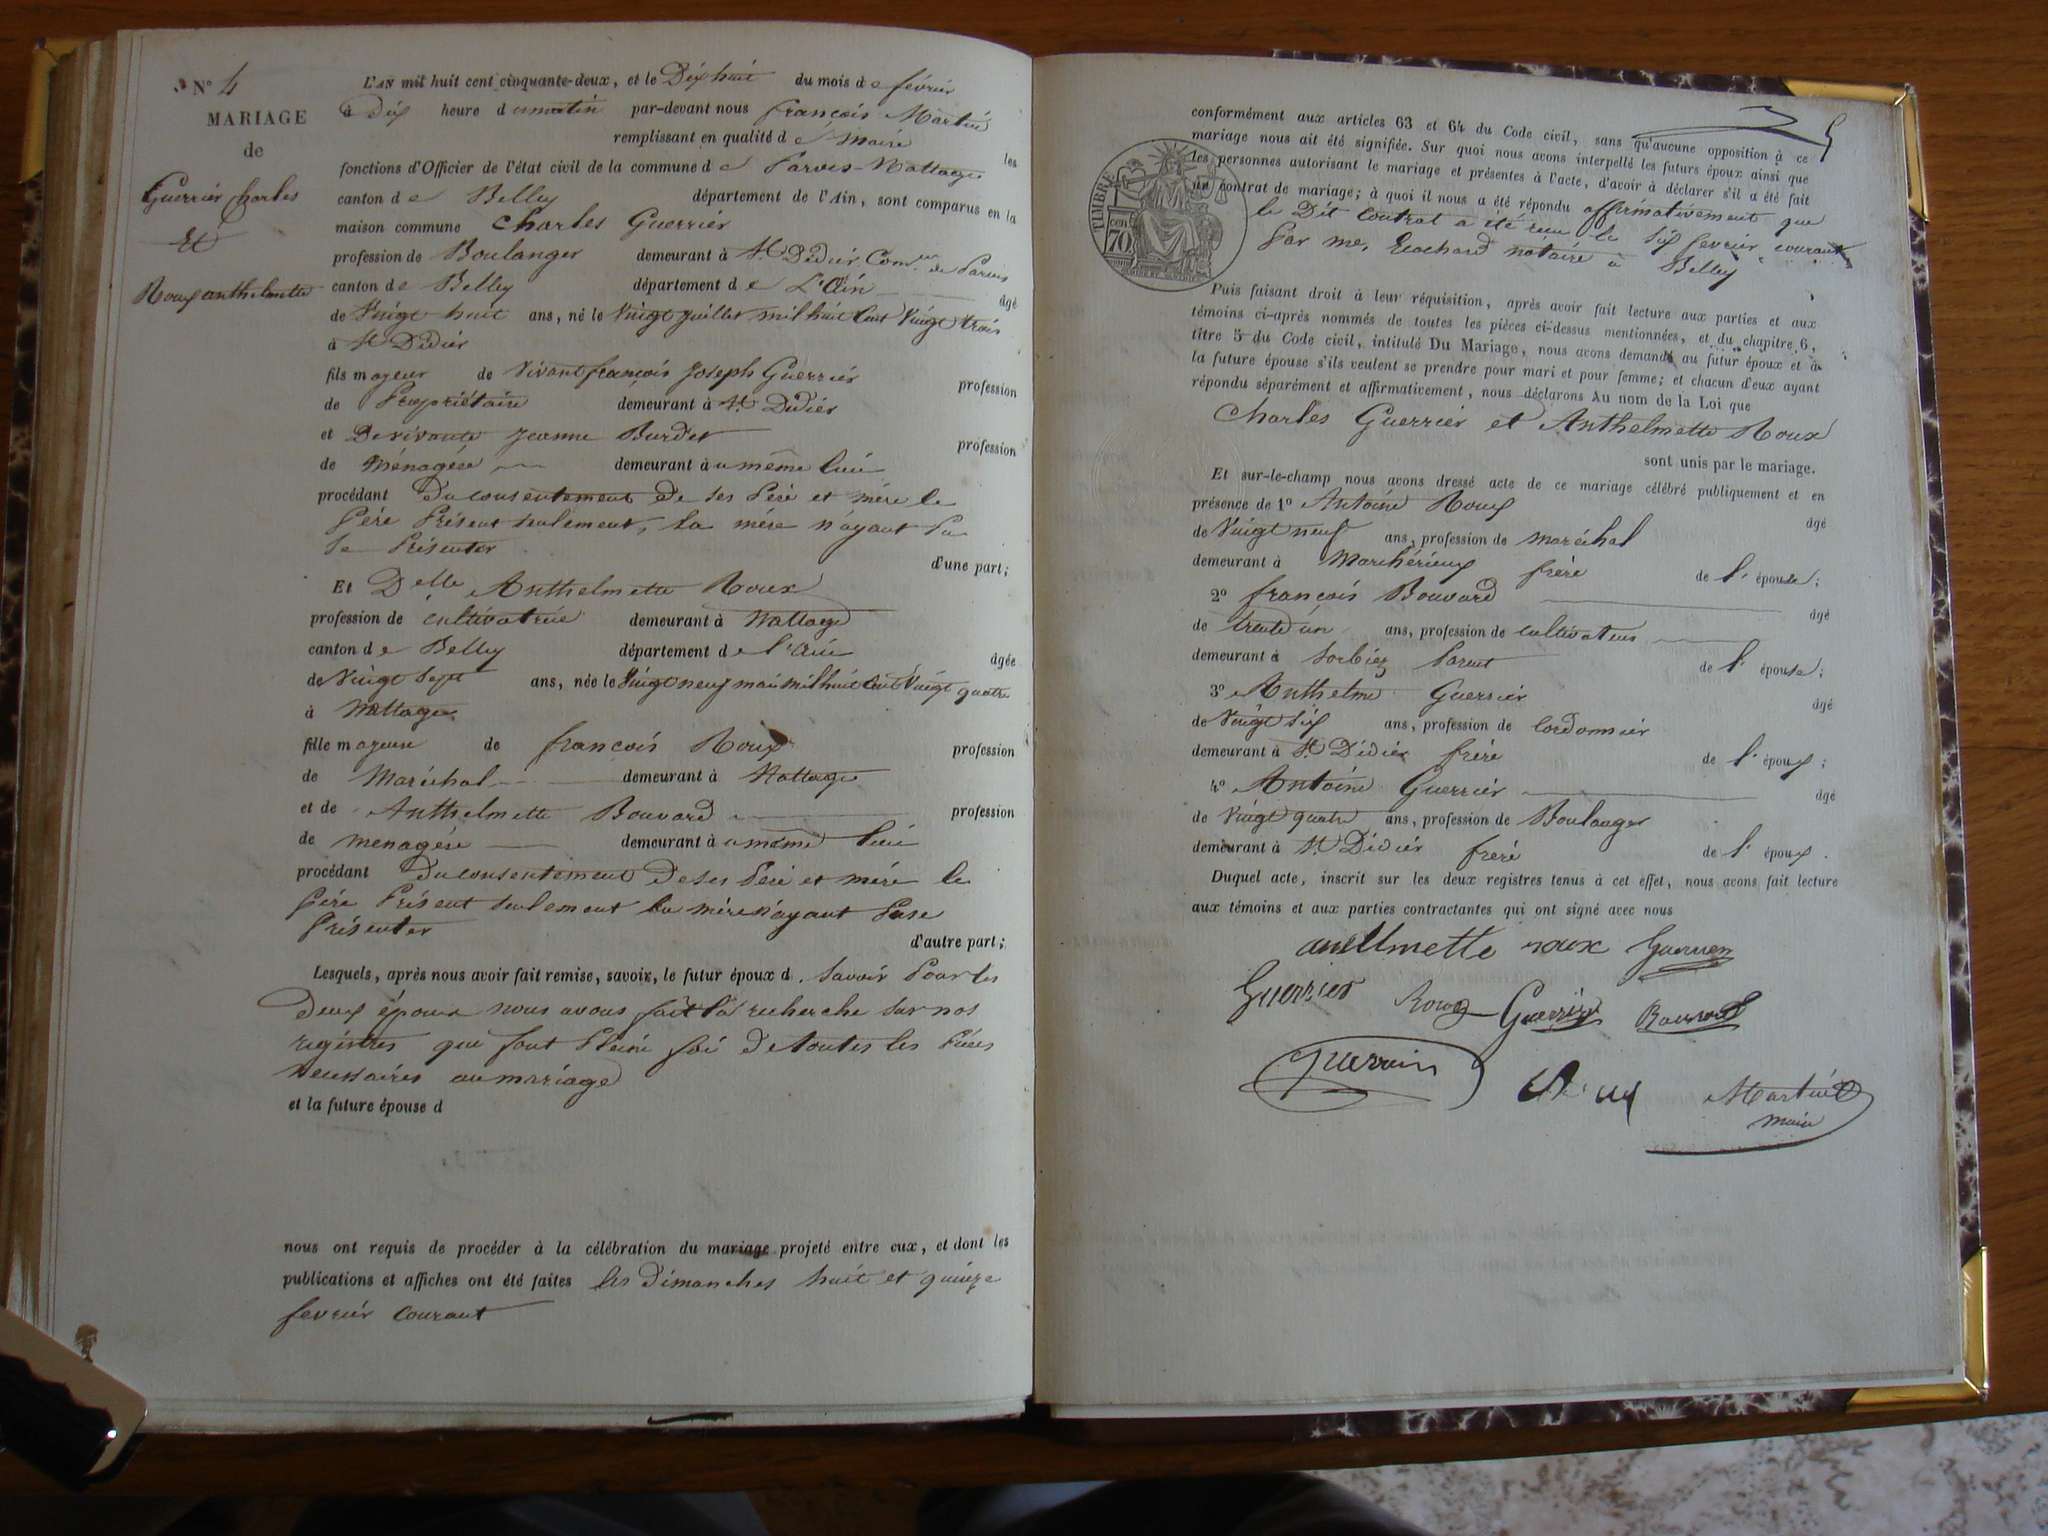 N° 4
MARIAGE
de
Guerrier Charles
Et
Roux anthelmette
L'AN mil huit cent cinquante-deux, et le Dix huit du mois de février
à Dix heure du matin par-devant nous françois Martin
remplissant en qualité de Maire les
fonctions d'Officier de l'état civil de la commune de Parves-Nattages
canton de Belley département de l'Ain, sont comparus en la
maison commune Charles Guerrier
profession de Boulanger demeurant à St Didier Com.ne de Parves
canton de Belley département de L'Ain âgé
de Vingt huit ans, né le Vingt juillet mil huit Cent Vingt trois
à St Didier
fils majeur de Vivant françois Joseph Guerrier profession
de Propriétaire demeurant à St Didier
et De vivante Jeanne Burdet profession
de Ménagére demeurant au même lieu
procédant Du consentement De ses Pére et mére le
Pére Présent seulement, la mére n'ayant Pu
Se Présenter
d'une part;
Et Delle Anthelmette Roux
profession de cultivatrice demeurant à Nattages
canton de Belley département de l'Ain âgée
de Vingt Sept ans, née le Vingt neuf mai mil huit Cent Vingt quatre
à Nattages
fille majeure de françois Roux profession
de Maréchal demeurant à Nattages
et de Anthelmette Bouvard profession
de menagére demeurant au même lieu
procédant Du consentement De ses Pére et mére le
Pére Présent seulement la mére n'ayant Pu se
Présenter
d'autre part;
Lesquels, après nous avoir fait remise, savoir, le futur époux d. Savoir Pour les
Deux époux nous avons fait la recherche sur nos
régistres qui font Pleine foi De toutes les Piéces
Necessaires au mariage
et la future épouse d
nous ont requis de procéder à la célébration du mariage projeté entre eux, et dont les
publications et affiches ont été faites les Dimanches huit et quinze
fevrier courant
5
TIMBRE
70
conformément aux articles 63 et 64 du Code civil, sans qu'aucune opposition à ce
mariage nous ait été signifiée. Sur quoi nous avons interpellé les futurs époux ainsi que
les personnes autorisant le mariage et présentes à l'acte, d'avoir à déclarer s'il a été fait
un contrat de mariage; à quoi il nous a été répondu affirmativement que
le Dit Contrat a été reçu le Six fevrier courant
Par me, notaire à Belley
Puis faisant droit à leur réquisition, après avoir fait lecture aux parties et aux
témoins ci-après nommés de toutes les pièces ci-dessus mentionnées, et du chapitre 6,
titre 5 du Code civil, intitulé Du Mariage, nous avons demandé au futur époux et à
la future épouse s'ils veulent se prendre pour mari et pour femme; et chacun d'eux ayant
répondu séparément et affirmativement, nous déclarons Au nom de la Loi que
Charles Guerrier et Anthelmette Roux
sont unis par le mariage.
Et sur-le-champ nous avons dressé acte de ce mariage célébré publiquement et en
présence de 1° Antoine Roux âgé
de Vingt neuf ans, profession de maréchal
demeurant à Marchérieux frére de l'épouse;
2° françois Bouvard âgé
de trente un ans, profession de cultivateur
demeurant à Sorbiez Parent de l'épouse;
3° Anthelme Guerrier âgé
de Vingt Six ans, profession de Cordonnier
demeurant à St Didier frére de l'époux;
4° Antoine Guerrier âgé
de Vingt quatre ans, profession de Boulanger
demeurant à St Didier freré de l'époux.
Duquel acte, inscrit sur les deux registres tenus à cet effet, nous avons fait lecture
aux témoins et aux parties contractantes qui ont signé avec nous
anthelmette roux Guerrier
Guerrier Roux Guerrier Bouvard
Guerrier Roux Martin
maire